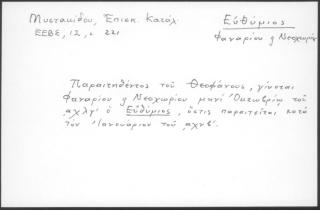 Μυστακίδου, Επισκ. Κατάλ.
ΕΕΒΣ, 12, σ. 221
Εὐθύμιος
Φαναρίου ἢ Νεοχωρίου
Παραιτηθέντος τοῦ Θεοφάνους, γίνεται
Φαναρίου ἢ Νεοχωρίου μηνὶ Ὀκτωβρίῳ τοῦ
αχλγ' ὁ Εὐθύμιος, ὅστις παραιτεῖται κατὰ
τὸν Ἰανουάριον τοῦ αχνβ'.